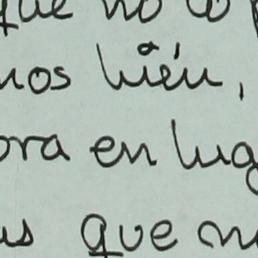 que no lo
nos bién,
ora en lug
us que m